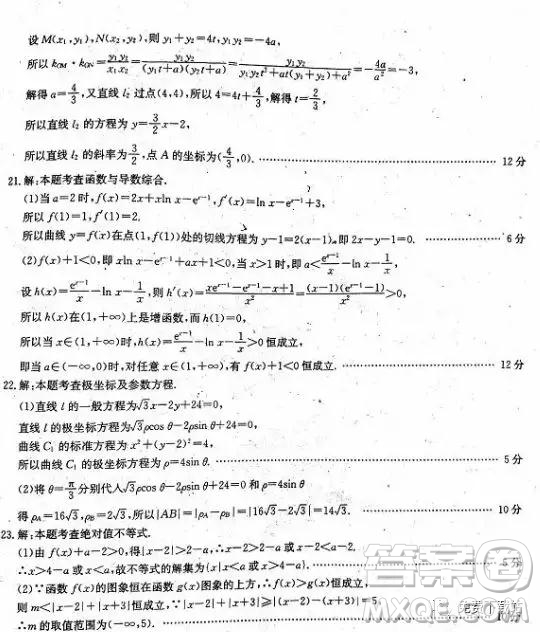 设 M(x₁,y₁),N(x₂,y₂),则 y₁+y₂=4t,y₁y₂=-4a,
所以 k_OM·k_ON=y₁y₂/x₁x₂=y₁y₂/((y₁t+a)(y₂t+a))=y₁y₂/(y₁y₂t²+at(y₁+y₂)+a²)=-4a/a²=-3,
解得 a=4/3,又直线 l₂ 过点(4,4),所以 4=4t+4/3,解得 t=2/3,
所以直线 l₂ 的方程为 y=3/2x-2,
所以直线 l₂ 的斜率为3/2,点 A 的坐标为(4/3,0). 12 分
21.解:本题考查函数与导数综合.
(1)当 a=2 时,f(x)=2x+xln x-e^(x-1),f′(x)=ln x-e^(x-1)+3,
所以 f(1)=1,f′(1)=2.
所以曲线 y=f(x)在点(1,f(1))处的切线方程为 y-1=2(x-1),即 2x-y-1=0. 6 分
(2)f(x)+1<0,即 xln x-e^(x-1)+ax+1<0,当 x>1 时,即 a<e^(x-1)/x-ln x-1/x,
设 h(x)=e^(x-1)/x-ln x-1/x,则 h′(x)=(xe^(x-1)-e^(x-1)-x+1)/x²=(x-1)(e^(x-1)-1)/x²>0,
所以 h(x)在(1,+∞)上是增函数,而 h(1)=0,
所以当 x∈(1,+∞)时,h(x)=e^(x-1)/x-ln x-1/x>0 恒成立,
即当 a∈(-∞,0)时,对任意 x∈(1,+∞),有 f(x)+1<0 恒成立. 12 分
22.解:本题考查极坐标及参数方程.
(1)直线 l 的一般方程为√3x-2y+24=0,
直线 l 的极坐标方程为√3ρcos θ-2ρsin θ+24=0,
曲线 C₁ 的标准方程为 x²+(y-2)²=4,
所以曲线 C₁ 的极坐标方程为 ρ=4sin θ. 5 分
(2)将 θ=π/3分别代入√3ρcos θ-2ρsin θ+24=0 和 ρ=4sin θ
得 ρ_A=16√3,ρ_B=2√3,所以|AB|=|ρ_A-ρ_B|=|16√3-2√3|=14√3. 10 分
23.解:本题考查绝对值不等式.
(1)由 f(x)+a-2>0,得|x-2|>2-a,∴x-2>2-a 或 x-2<a-2,
∴x>4-a 或 x<a,故不等式的解集为{x|x<a 或 x>4-a}. 5 分
(2)∵函数 f(x)的图象恒在函数 g(x)图象的上方,∴f(x)>g(x)恒成立,
则 m<|x-2|+|x+3|恒成立,∵|x-2|+|x+3|≥|(x-2)-(x+3)|=5,
∴m 的取值范围为(-∞,5). 10分
答案圈
MXQE.COM